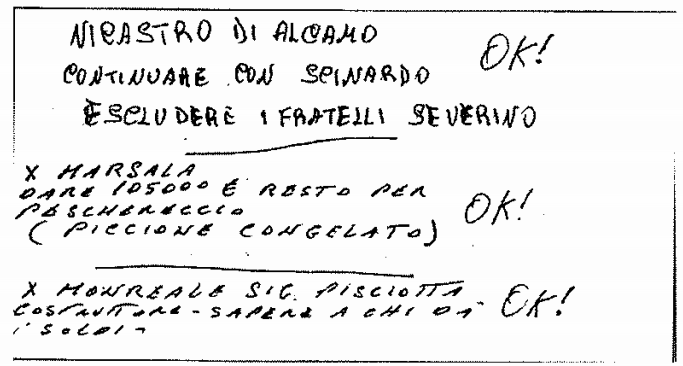 NICASTRO DI ALCAMO
CONTINUARE CON SPINARDO OK!
ESCLUDERE I FRATELLI SEVERINO
X MARSALA
DARE 105000 E RESTO PER
PESCHERECCIO OK!
( PICCIONE CONGELATO)
X MONREALE SIG. PISCIOTTA
COSTRUTTORE - SAPERE A CHI DA OK!
I SOLDI